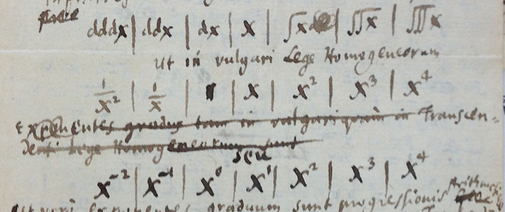 dddx | ddx | dx | x | ∫x | ∫∫x | ∫∫∫x
ut in vulgari Lege Homogeneorum
1/x² | 1/x | 1 | x | x² | x³ | x⁴
Exponentes gradus tam in vulgari quam in Transcen=
denti Lege Homogeneorum sunt
seu
x⁻² | x⁻¹ | x⁰ | x¹ | x² | x³ | x⁴
exponentes graduum sunt progressionis Arithmeti